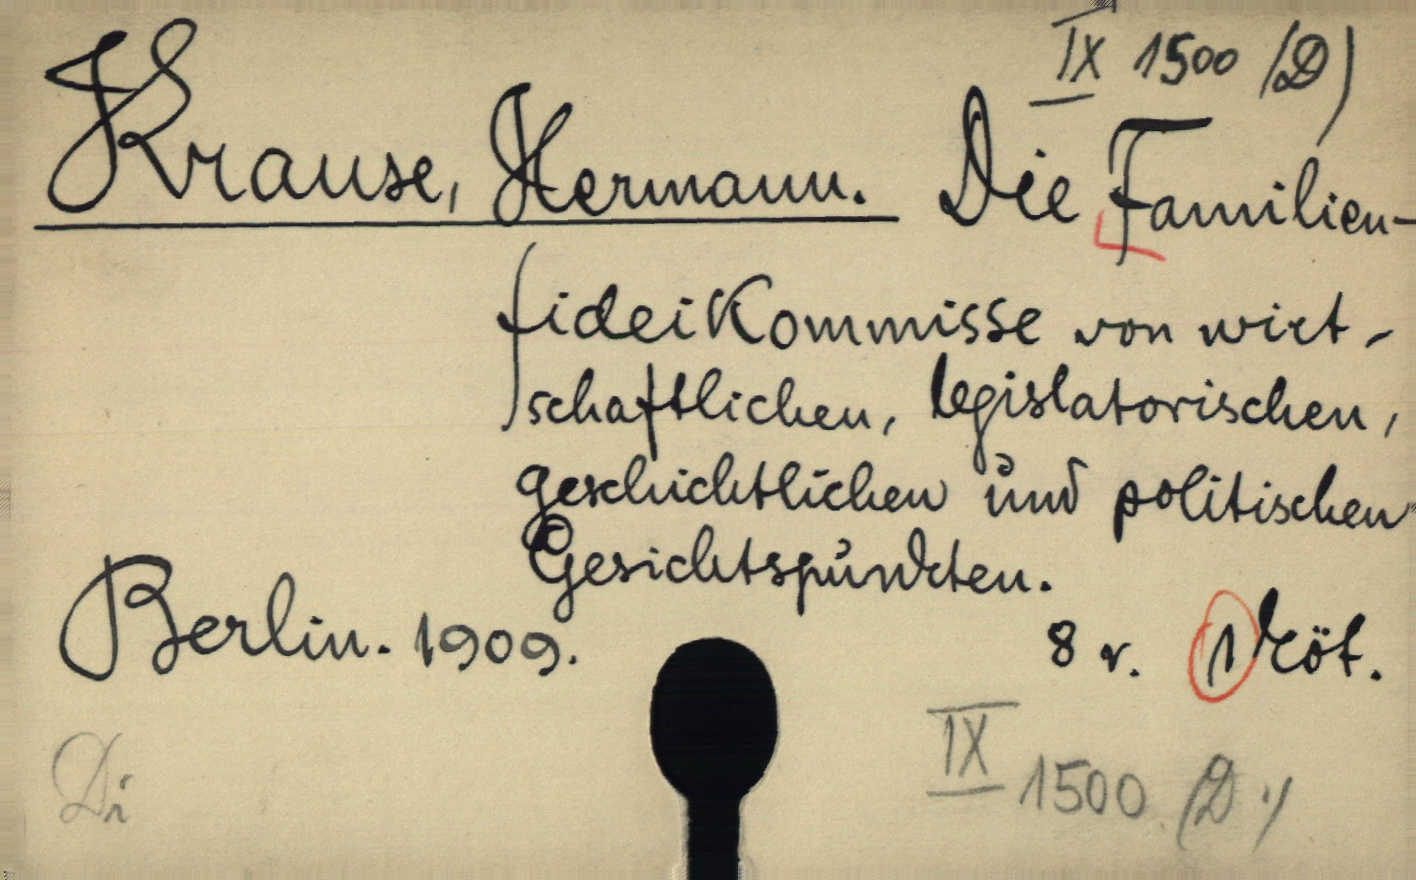 IX 1500 (D)
Krause, Hermann. Die Familien-
fideikommisse von wirt-
schaftlichen, legislatorischen,
geschichtlichen und politischen
Gesichtspunkten.
Berlin. 1909. 8 r. 1 köt.
Di
IX 1500 (D.)